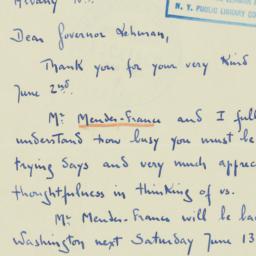 N. Y. PUBLIC LIBRARY CO
Dear Governor Lehman,
Thank you for your very kind
June 2nd.
Mr Mendes-France and I full
understand how busy you must be
trying days and very much apprec
thoughtfulness in thinking of us.
Mr Mendes-France will be bac
Washington next Saturday June 13